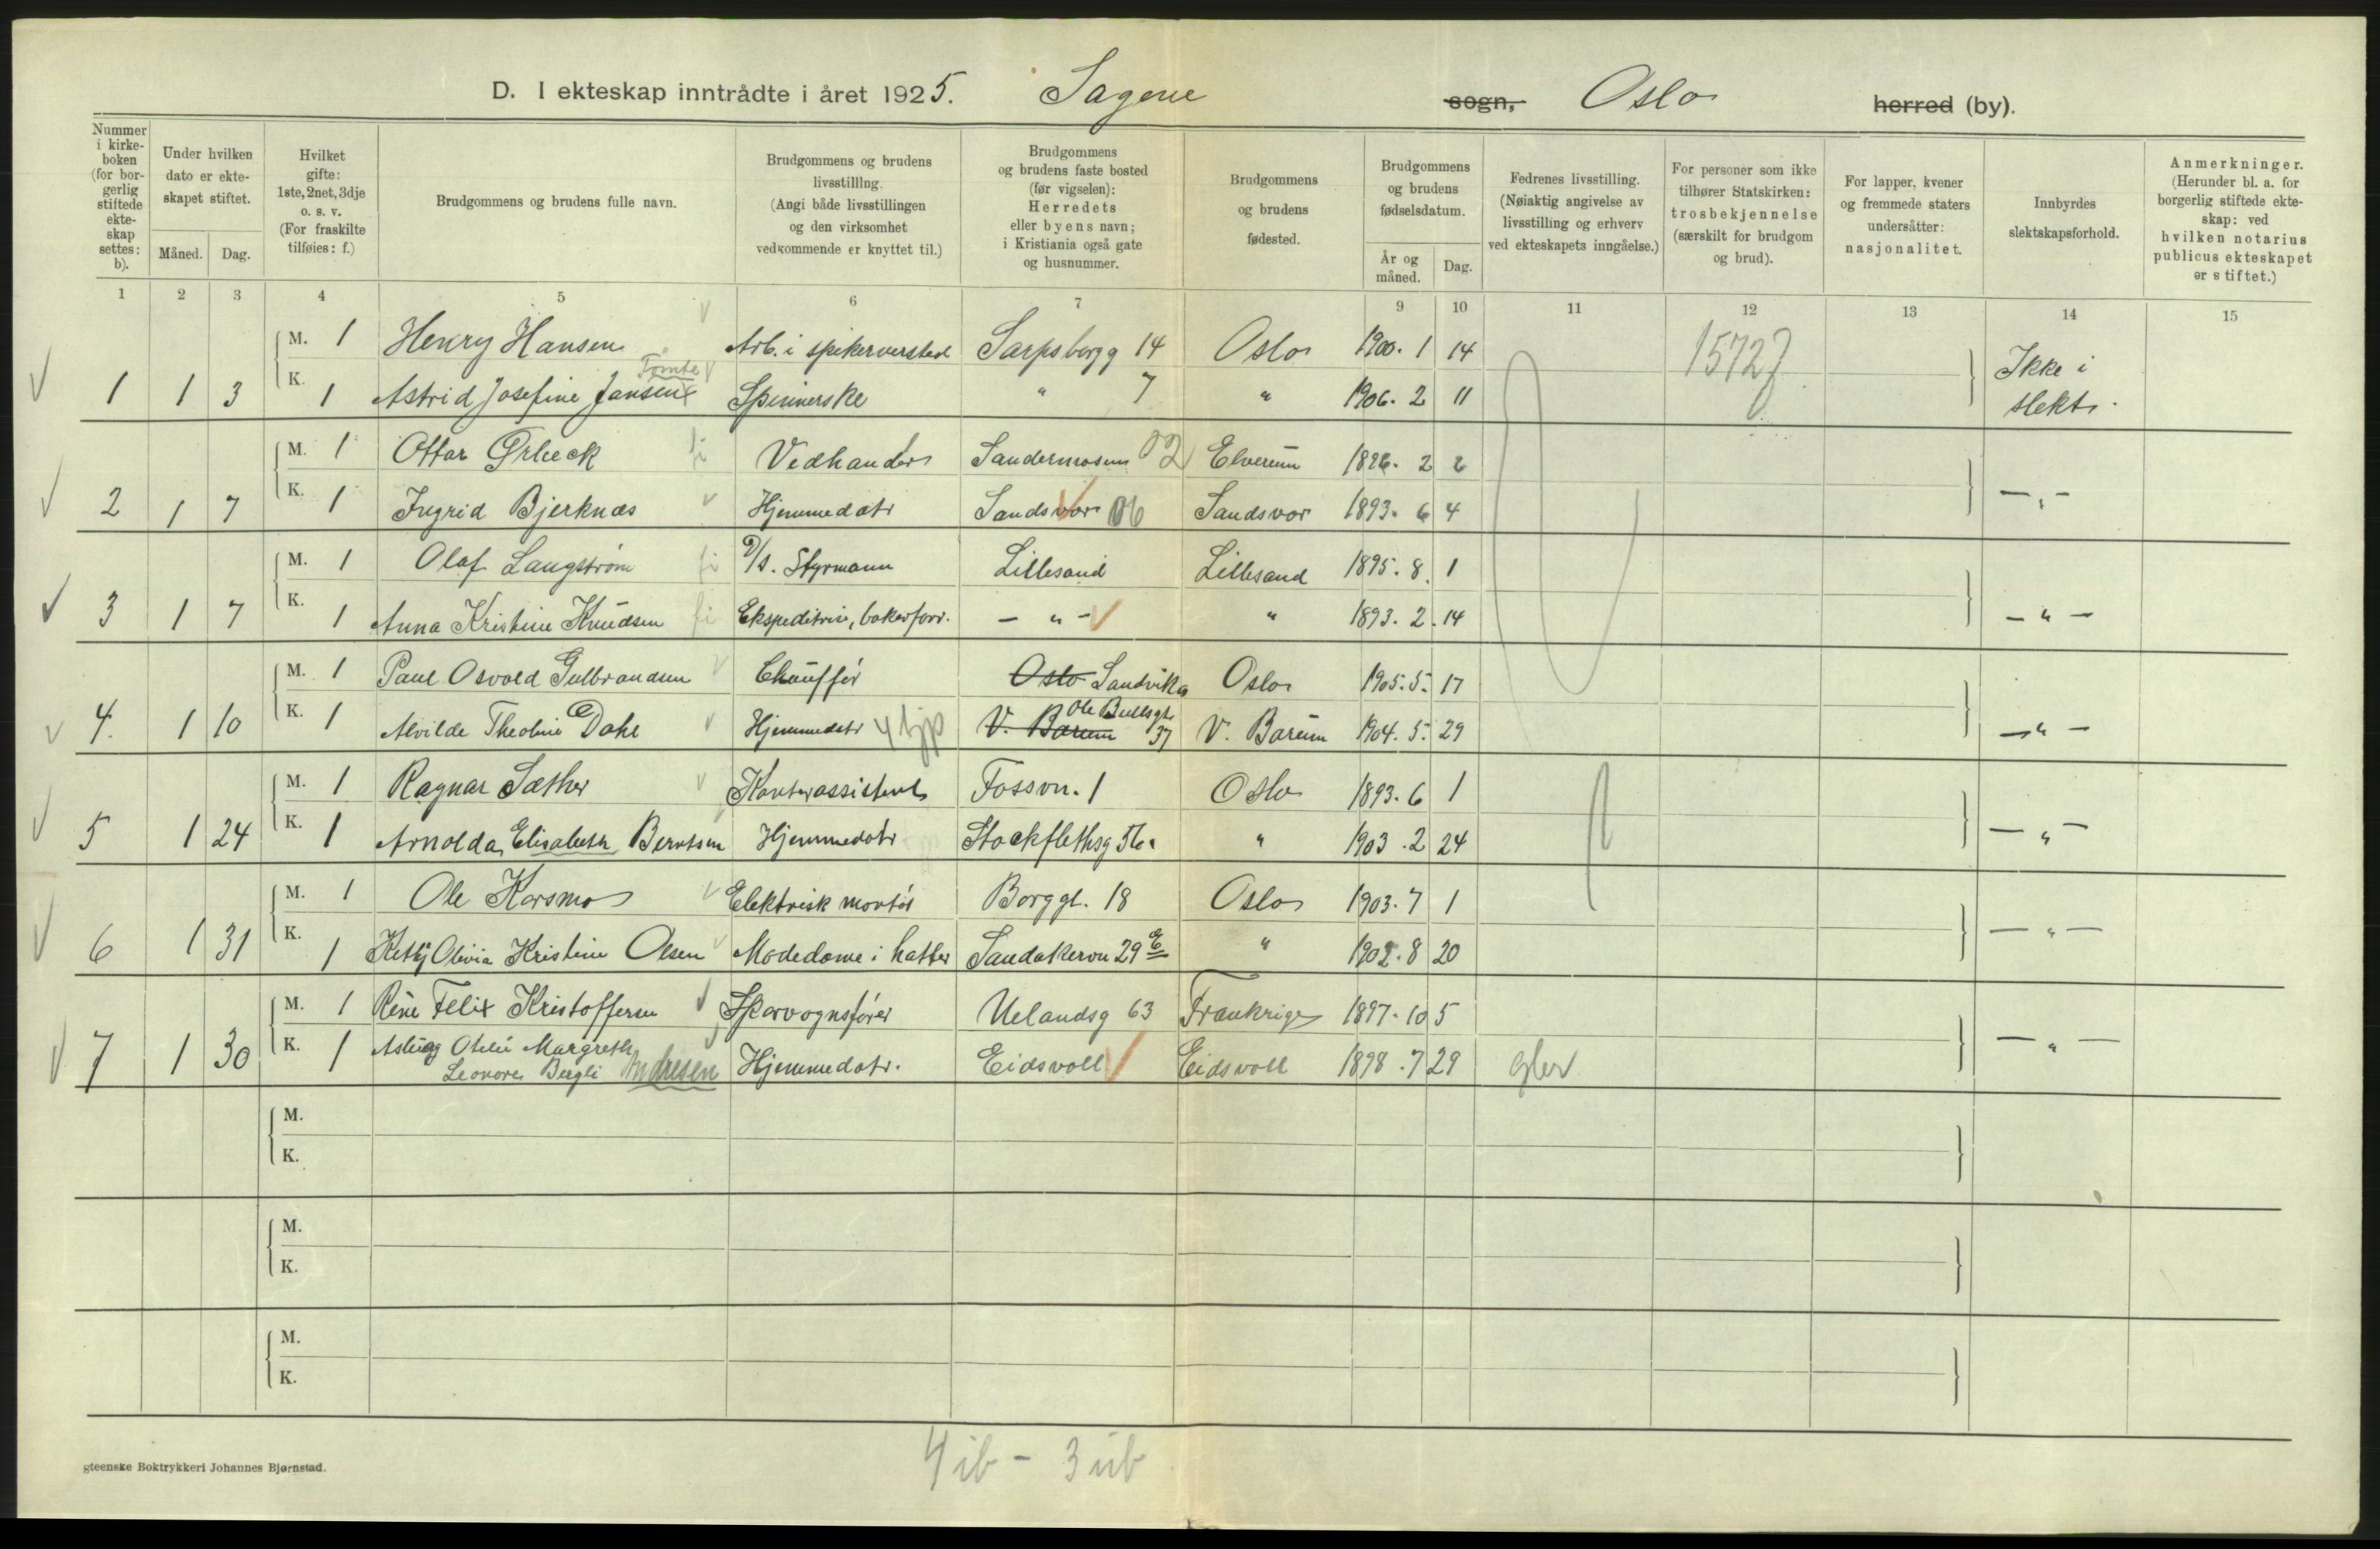 D. I ekteskap inntrådte i året 1925. Sagene sogn, Oslo herred (by).
Nummer i kirke-boken (for bor-gerlig stiftede ekte-skap settes: b).
Under hvilken dato er ekte-skapet stiftet.
Måned. Dag.
Hvilket gifte: 1ste, 2net, 3dje o. s. v. (For fraskilte tilføies: f.)
Brudgommens og brudens fulle navn.
Brudgommens og brudens livsstilling. (Angi både livsstillingen og den virksomhet vedkommende er knyttet til.)
Brudgommens og brudens faste bosted (før vigselen): Herredets eller byens navn; i Kristiania også gate og husnummer.
Brudgommens og brudens fødested.
Brudgommens og brudens fødselsdatum.
År og måned. Dag.
Fedrenes livsstilling. (Nøiaktig angivelse av livsstilling og erhverv ved ekteskapets inngåelse.)
For personer som ikke tilhører Statskirken: trosbekjennelse (særskilt for brudgom og brud).
For lapper, kvener og fremmede staters undersåtter: nasjonalitet.
Innbyrdes slektskapsforhold.
Anmerkninger. (Herunder bl. a. for borgerlig stiftede ekte-skap: ved hvilken notarius publicus ekteskapet er stiftet.)
1 2 3 4 5 6 7 9 10 11 12 13 14 15
M. 1 Henry Hansen Arb. i spikerversted Sarpsborgg 14 Oslo 1900. 1 14 15727 Ikke i
Tomte
1 1 3 K. 1 Astrid Josefine Jansen Spinnerske " 7 " 1906. 2 11 slekt.
M. 1 Ottar Ørbeck Vedhandler Sandermosen 02 Elverum 2
2 1 7 K. 1 Ingrid Bjerknæs Hjemmedatr Sandsvær 06 Sandsvær 1893. 6 4 - " -
M. 1 Olaf Langstrøm D/s. Styrmann Lillesand Lillesand 1895. 8. 1
3 1 7 K. 1 Anna Kristine Knudsen Ekspeditrise, bakerforr. - " - " 1893. 2. 14 - " -
M. 1 Paul Osvald Gulbrandsen Chauffør Oslo Sandvika Oslo 1905. 5. 17
Ole Bullsgt.
4. 1 10 K. 1 Alvilde Theoline Dahl Hjemmedatr V. Bærum 37 V. Bærum 1904. 5. 29 - " -
M. 1 Ragnar Sæther Kontorassistent Fossvn. 1 Oslo 1893. 6 1
5 1 24 K. 1 Arnolda Elisabeth Berntsen Hjemmedatr Stockflethsg 56a " 1903. 2 24 - " -
M. 1 Ole Korsmo Elektrisk montør Borggt. 18 Oslo 1903. 7 1
6 1 31 K. 1 Ketty Olivia Kristine Olsen Modedame i hatter Sandakervn 29 E " 1902. 8 20 - " -
M. 1 Réne Felix Kristoffersen Sporvognsfører Uelandsg 63 Frankrige 1897. 10 5
Aslaug Otelie Margreth
7 1 30 K. 1 Leonore Bergli Andresen Hjemmedatr. Eidsvoll Eidsvoll 1898. 7 29 - " -
M.
K.
M.
K.
M.
K.
4 ib - 3 ub
gteenske Boktrykkeri Johannes Bjørnstad.